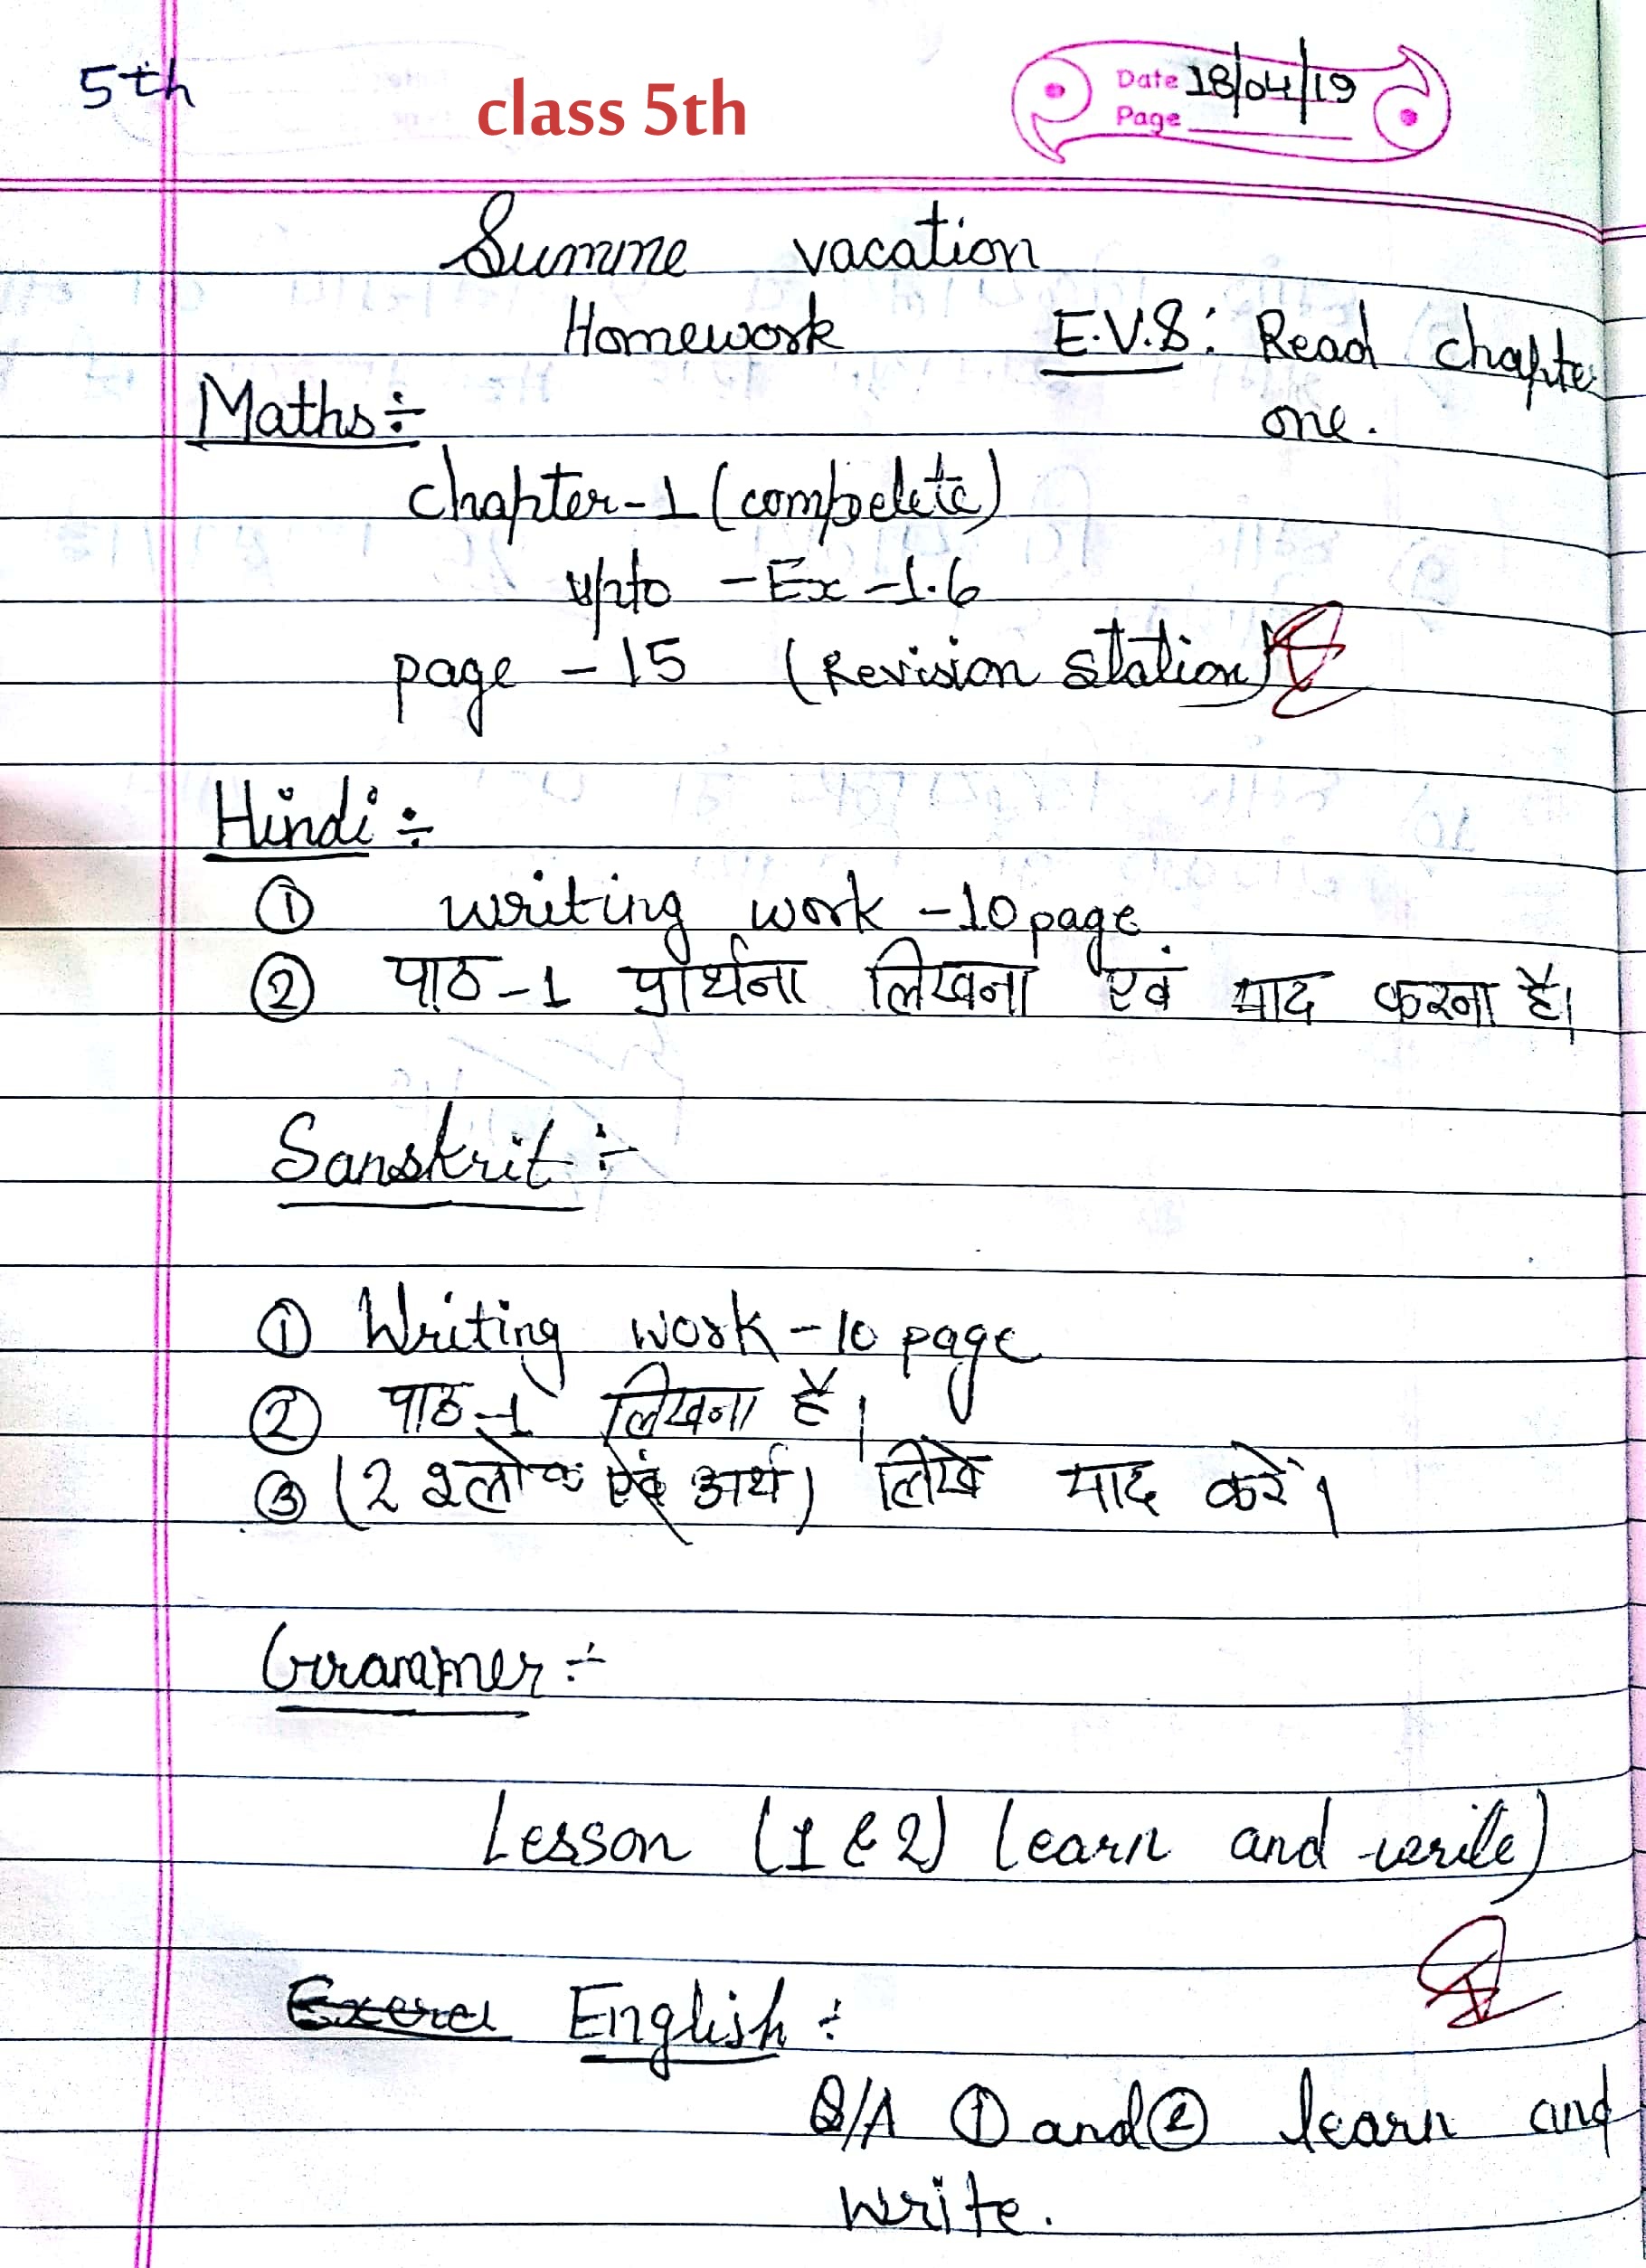 5th
class 5th
Date 18/04/19
Page
Summe vacation
Homework
E.V.S: Read chapte
one.
Maths÷
chapter-1 (compelete)
upto - Ex -1.6
page - 15 (Revision station)
Hindi÷
① writing work - 10 page
② पाठ-1 प्रार्थना लिखना एवं याद करना है।
Sanskrit÷
① Writing work - 10 page
② पाठ-1 लिखना है।
③ (2 श्लोक एवं अर्थ) लिखे याद करें।
Grammer÷
Lesson (1 & 2) learn and write)
Exerci English÷
Q/A ① and ② learn and
write.